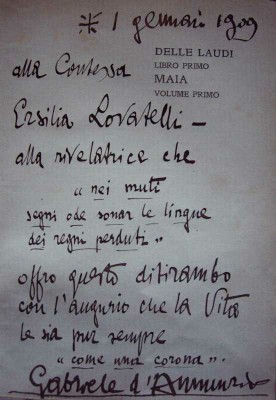 1 gennaio 1909
DELLE LAUDI
LIBRO PRIMO
MAIA
VOLUME PRIMO
alla Contessa
Ersilia Lovatelli –
alla rivelatrice che
"nei muti
segni ode sonar le lingue
dei regni perduti"
offro questo ditirambo
con l'augurio che la Vita
le sia pur sempre
"come una corona".
Gabriele d'Annunzio